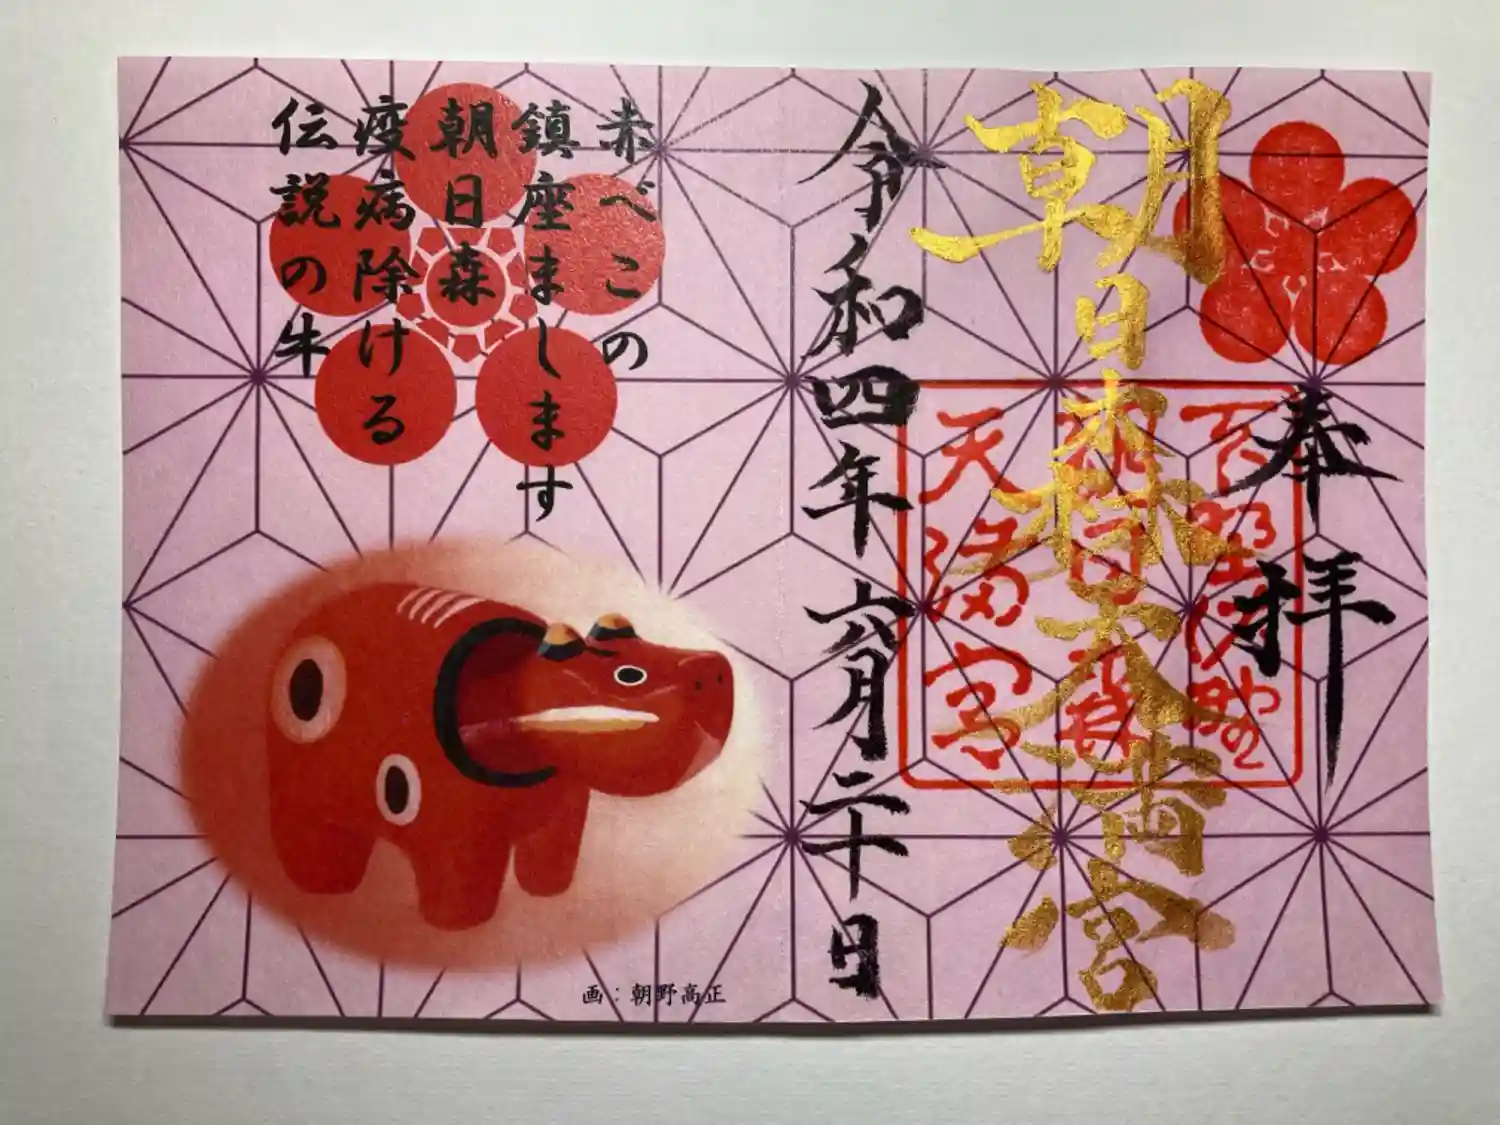 奉拝
朝日森天満宮
下野佐野
朝日森
天満宮
令和四年六月二十日
赤べこの
鎮座まします
朝日森
疫病除ける
伝説の牛
画：朝野高正